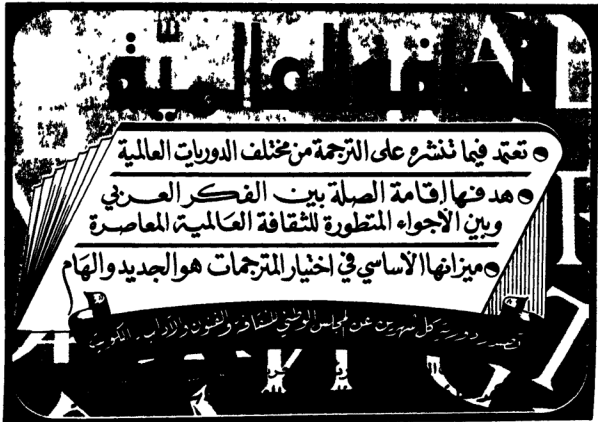 الثقافة العالمية
تعتمد فيما تنشره على الترجمة من مختلف الدوريات العالمية
هدفها إقامة الصلة بين الفكر العربي
وبين الأجواء المتطورة للثقافة العالمية المعاصرة
ميزانها الأساسي في اختيار المترجمات هو الجديد والهام
تصدر دورية كل شهرين عن المجلس الوطني للثقافة والفنون والآداب - الكويت